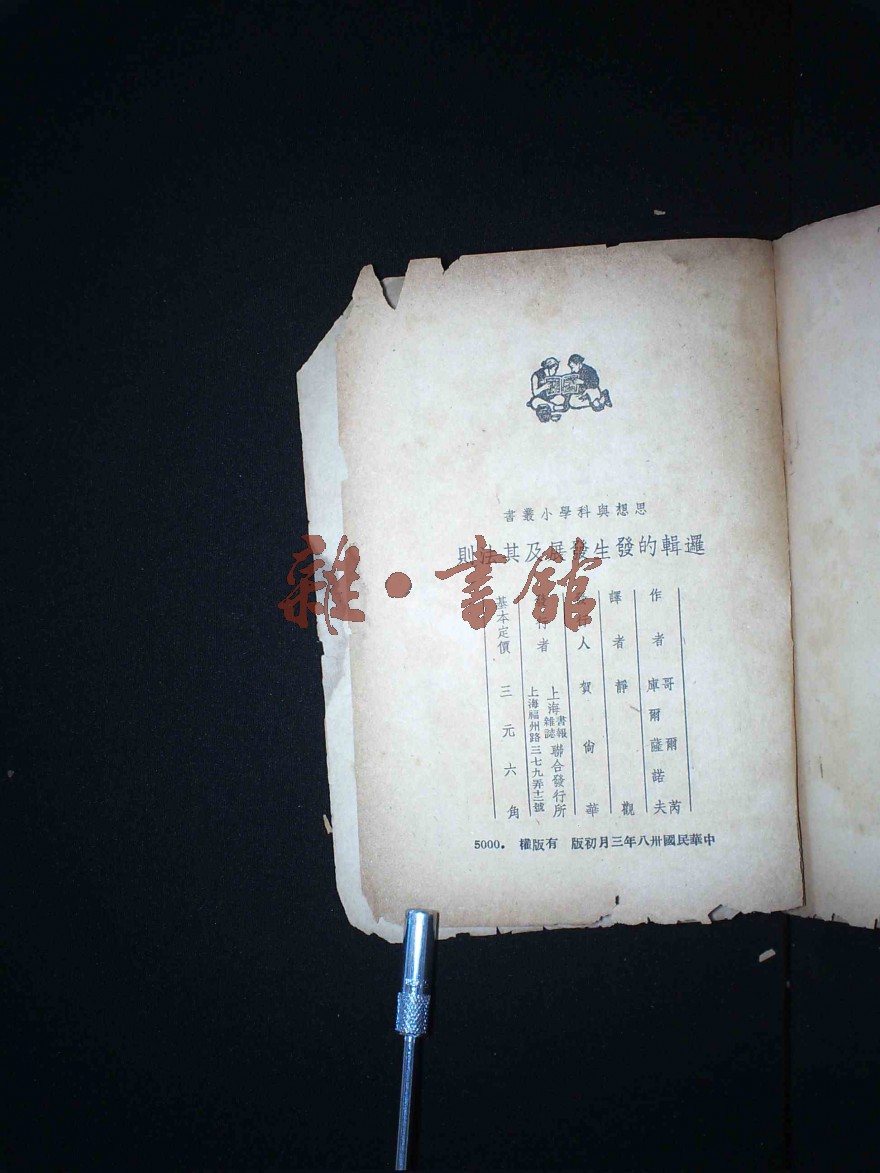 思想與科學小叢書
邏輯的發生發展及其法則
作者 哥爾芮 庫爾薩諾夫
譯者 靜觀
發行人 賀尚華
發行者 上海書報雜誌聯合發行所
上海福州路三七九弄十二號
基本定價 三元六角
中華民國卅八年三月初版 有版權 5000.
雜·書館